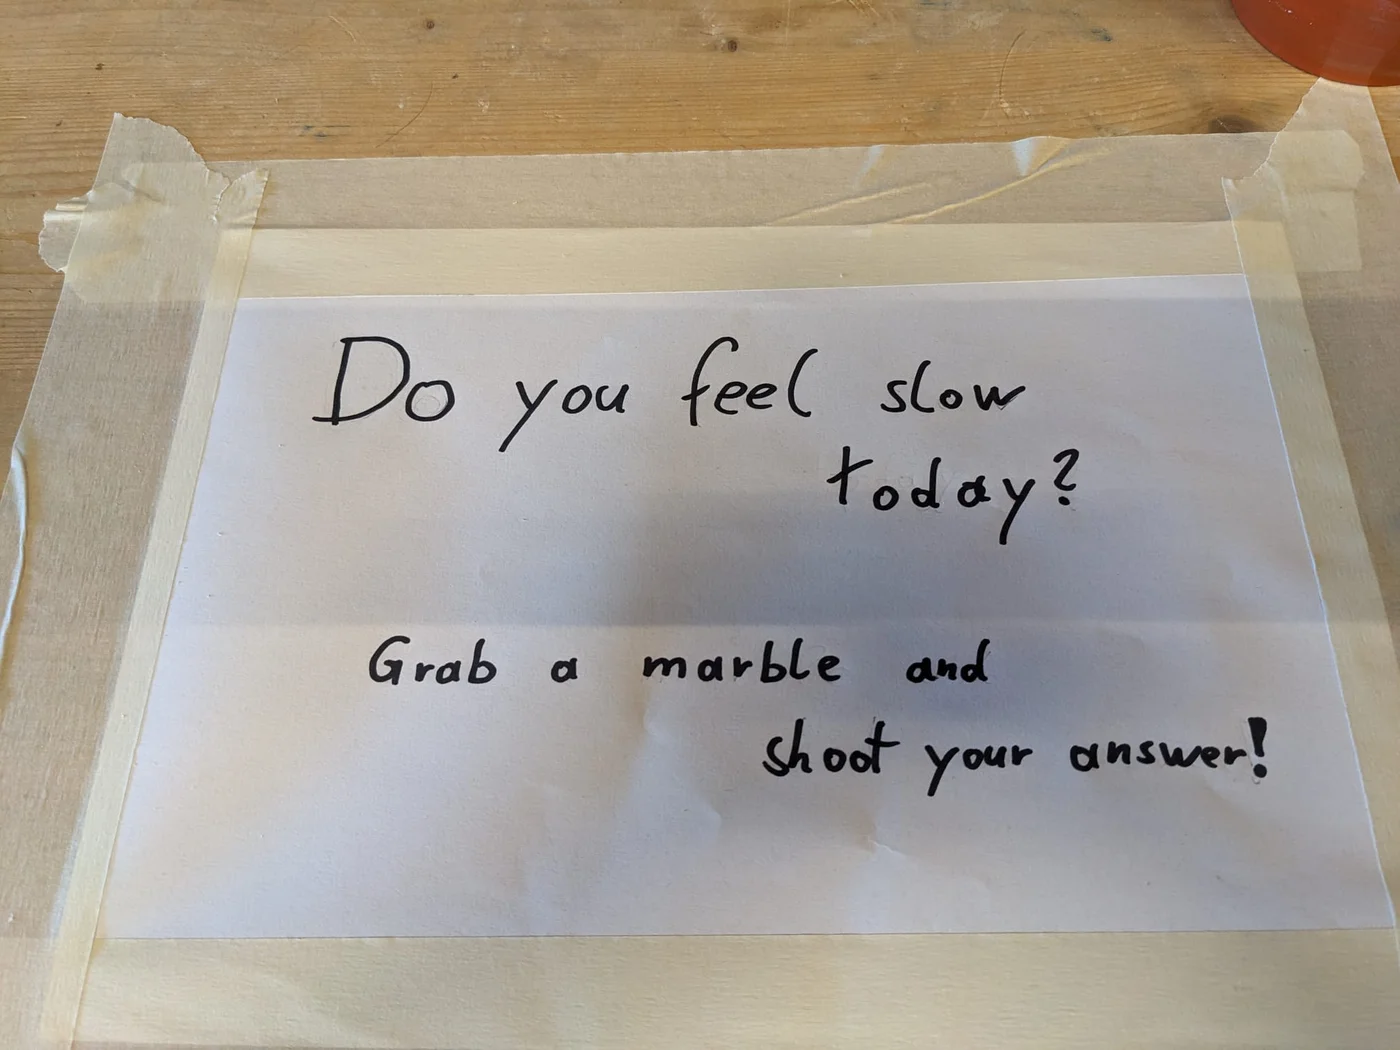 Do you feel slow
today?
Grab a marble and
shoot your answer!